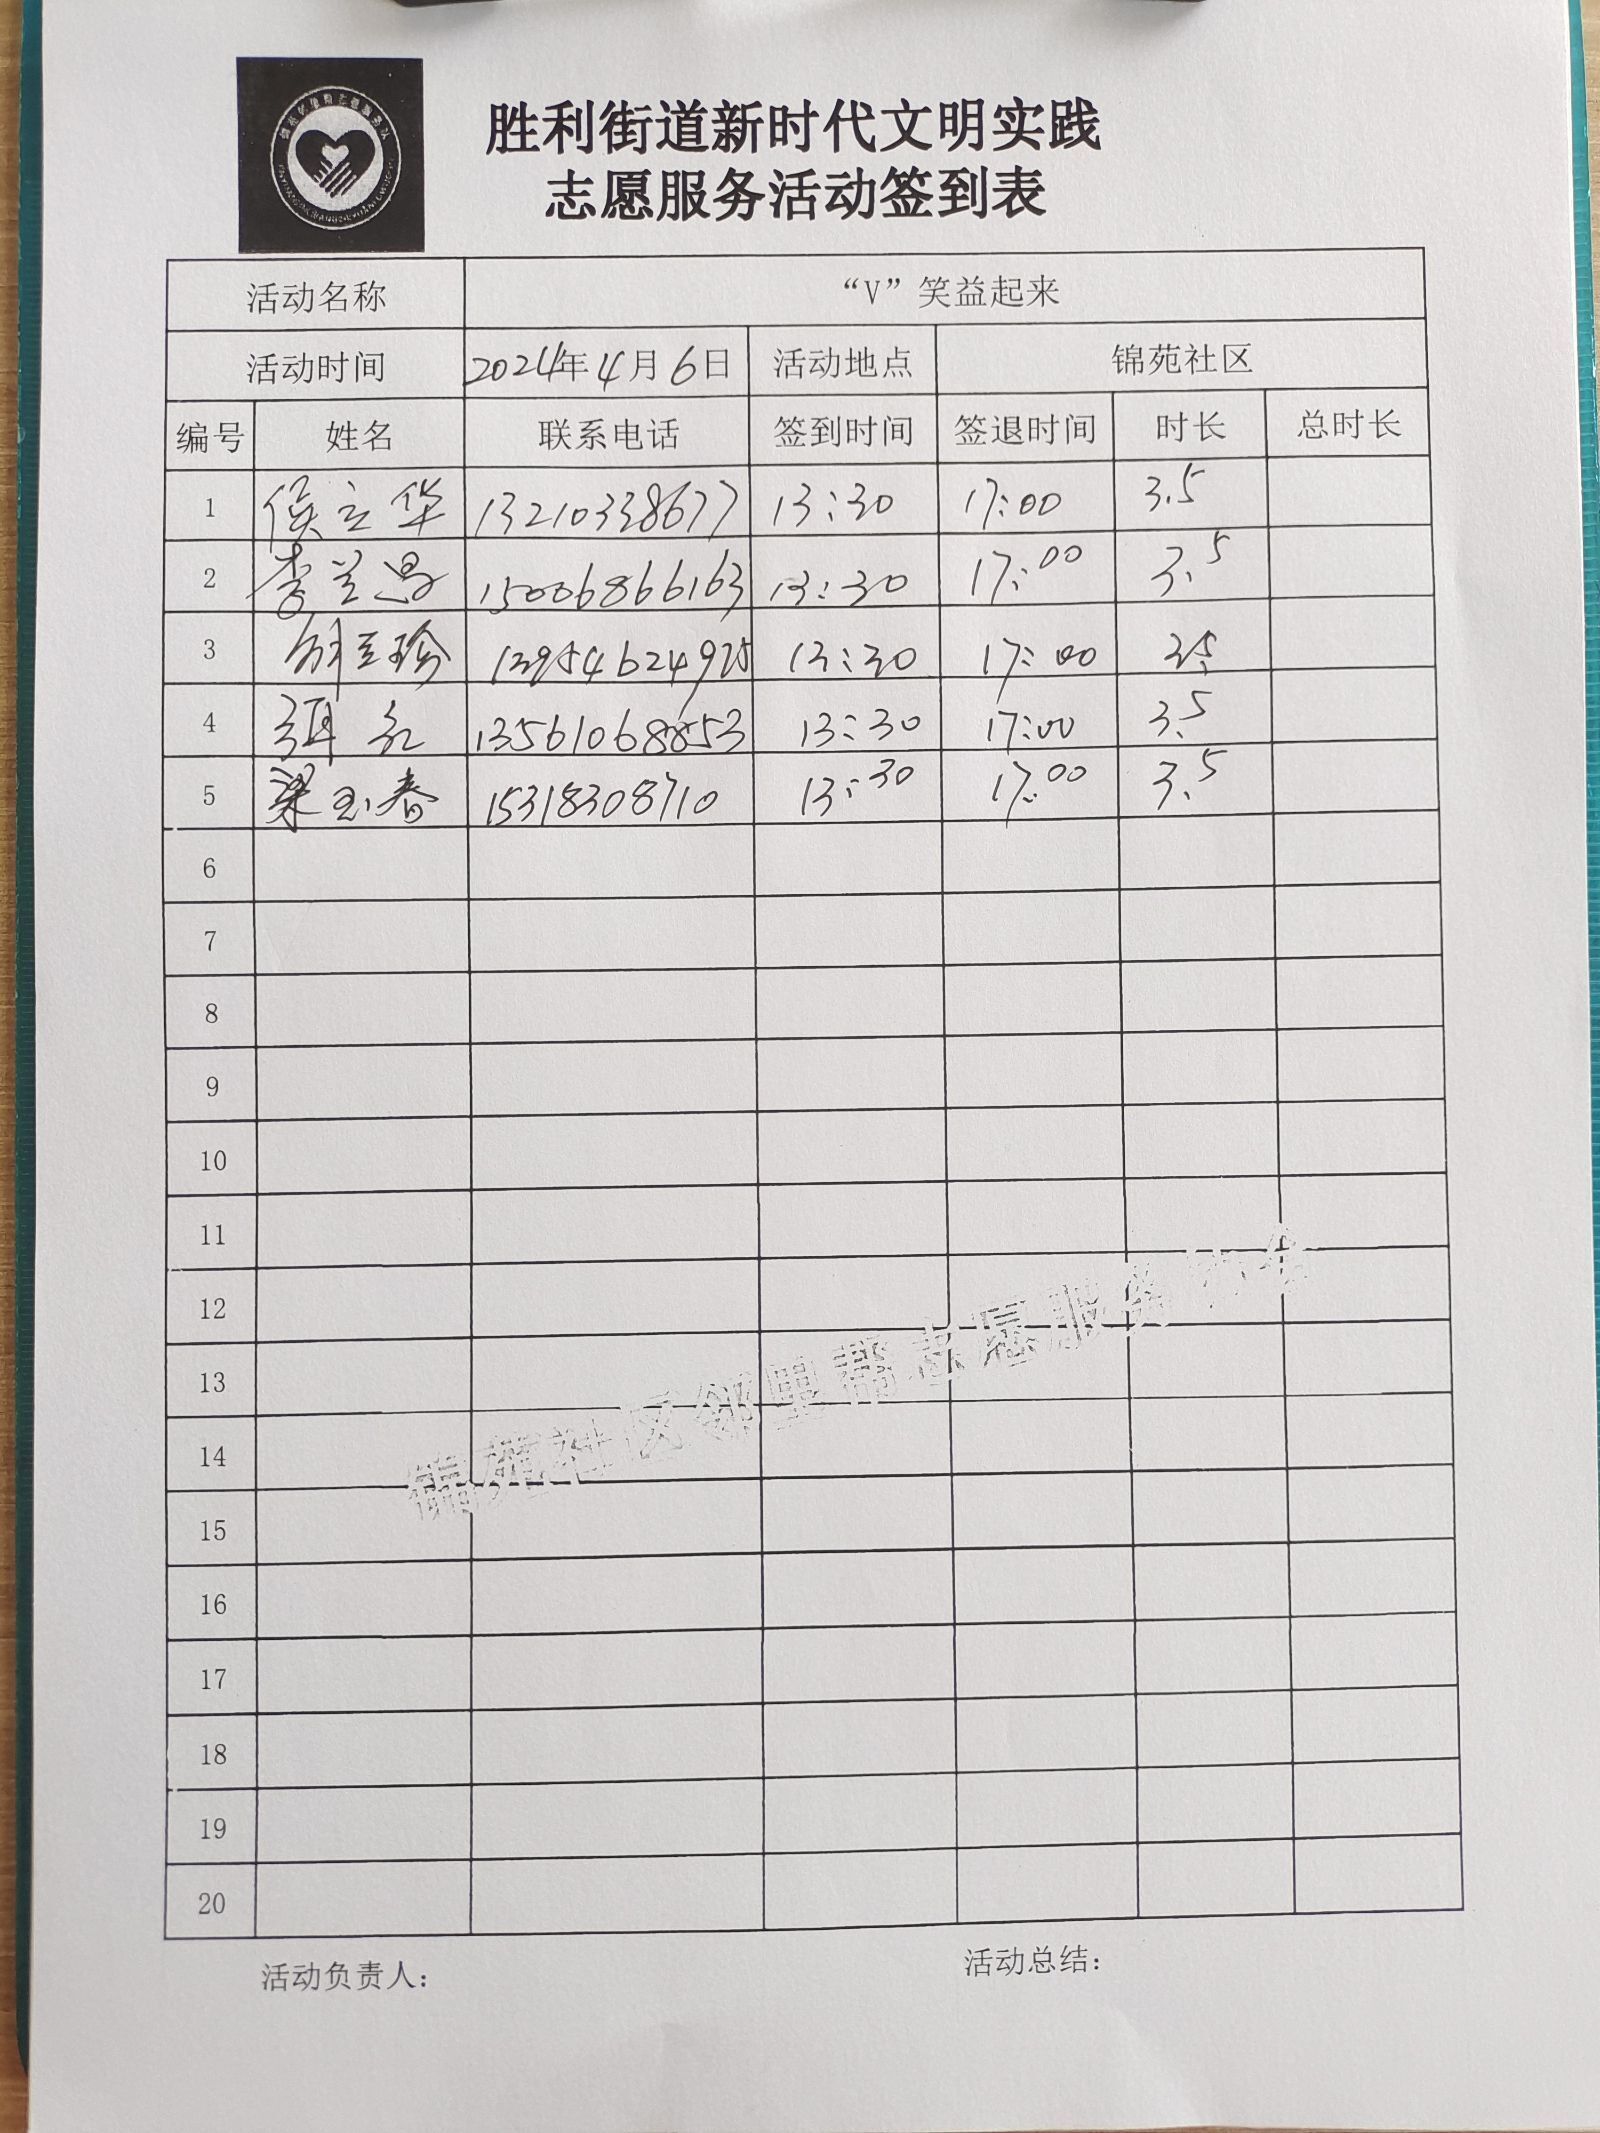 胜利街道新时代文明实践
志愿服务活动签到表
活动名称 “V”笑益起来
活动时间 2024年4月6日 活动地点 锦苑社区
编号 姓名 联系电话 签到时间 签退时间 时长 总时长
1 侯立华 13210338677 13:30 17:00 3.5
2 李兰 15006866163 13:30 17:00 3.5
3 珍 13954624925 13:30 17:00 3.5
4 13561068853 13:30 17:00 3.5
5 梁玉春 15318308710 13:30 17:00 3.5
6
7
8
9
10
11
12
13
14
15
16
17
18
19
20
锦苑社区邻里帮志愿服务协会
活动负责人:
活动总结: